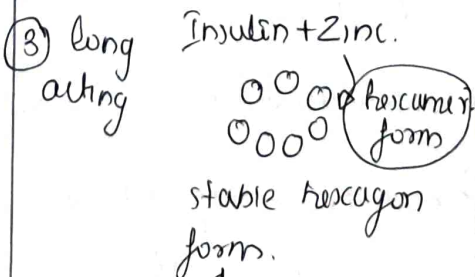 ③ long acting
Insulin + Zinc.
hexcumer form
stable hexcagon
form.